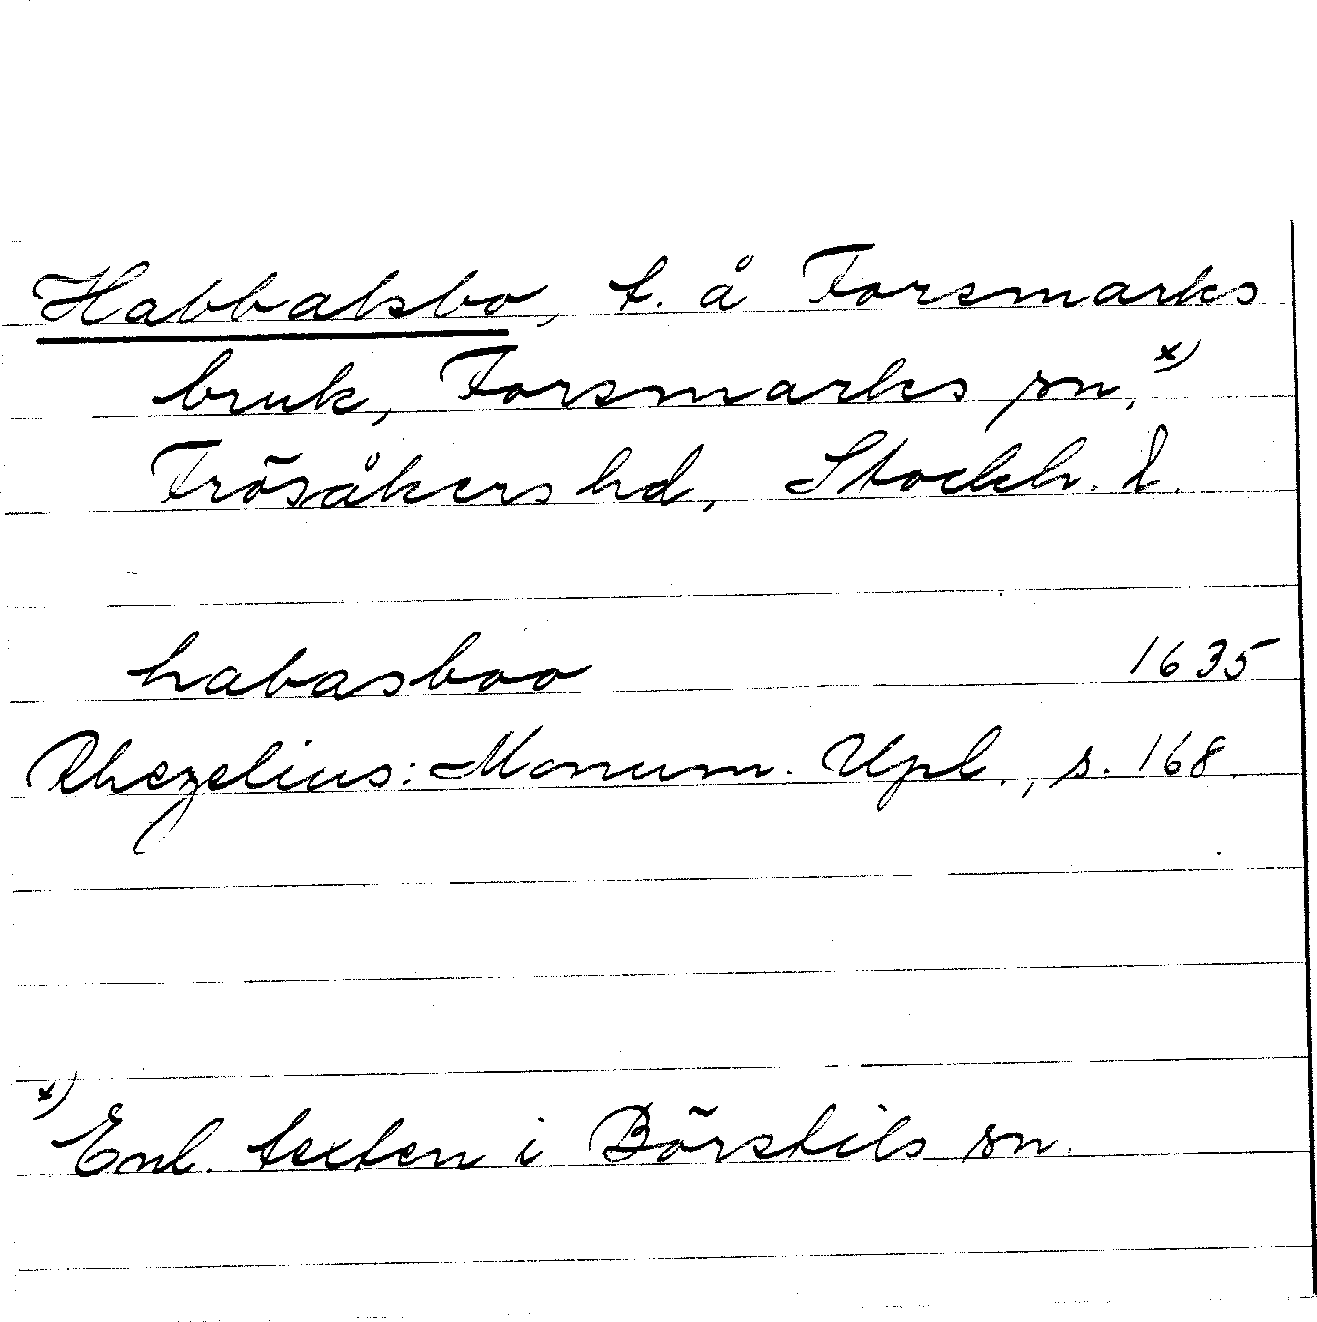 Habbalsbo, t. å Forsmarks
bruk, Forsmarks sn, x)
Frösåkers hd, Stockh. l.
habasboo 1635
Rhezelius: Monum. Upl., s. 168.
x) Enl. texten i Börstils sn.